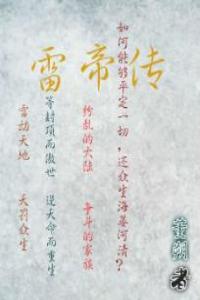 雷帝传
如何能够平定一切，还众生海晏河清？
纷乱的大陆 争斗的家族
等封项而傲世 逆天命而重生
雷动天地 众生
者